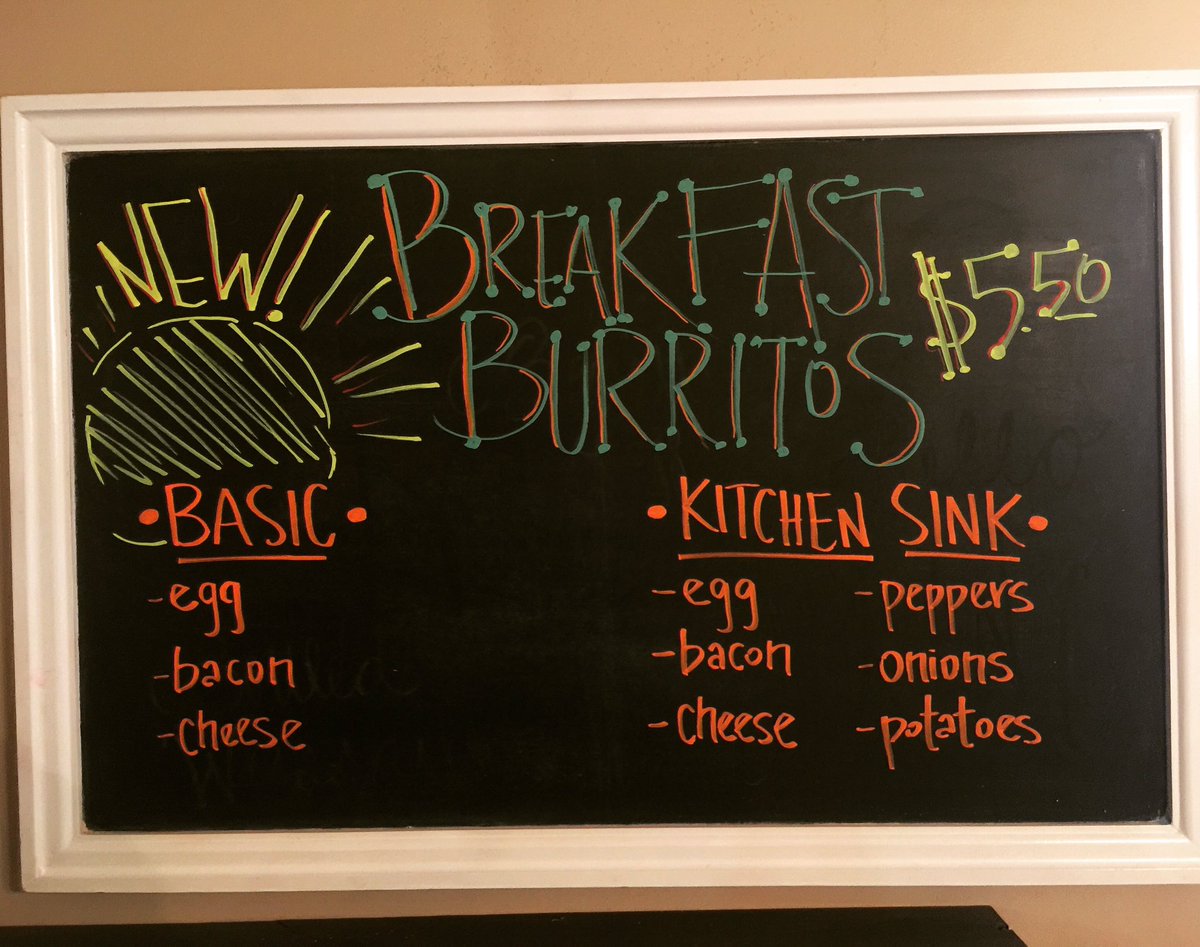 NEW!
BREAKFAST
BURRITOS
$5.50
•BASIC•
-egg
-bacon
-cheese
•KITCHEN SINK•
-egg -peppers
-bacon -onions
-cheese -potatoes